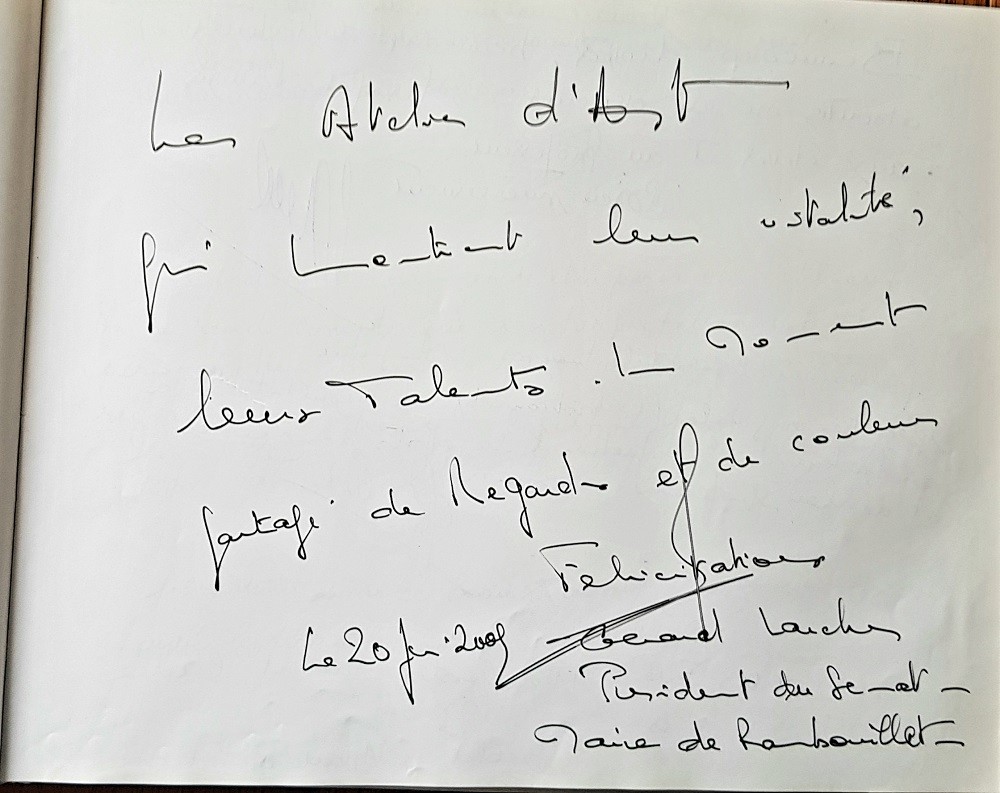 Les Ateliers d'Art
qui montrent leur vitalité,
leurs Talents. Un Moment
partagé de Regards et de couleurs
Félicitations
Le 20 Juin 2009 Gérard Larcher
Président du Sénat -
Maire de Rambouillet -